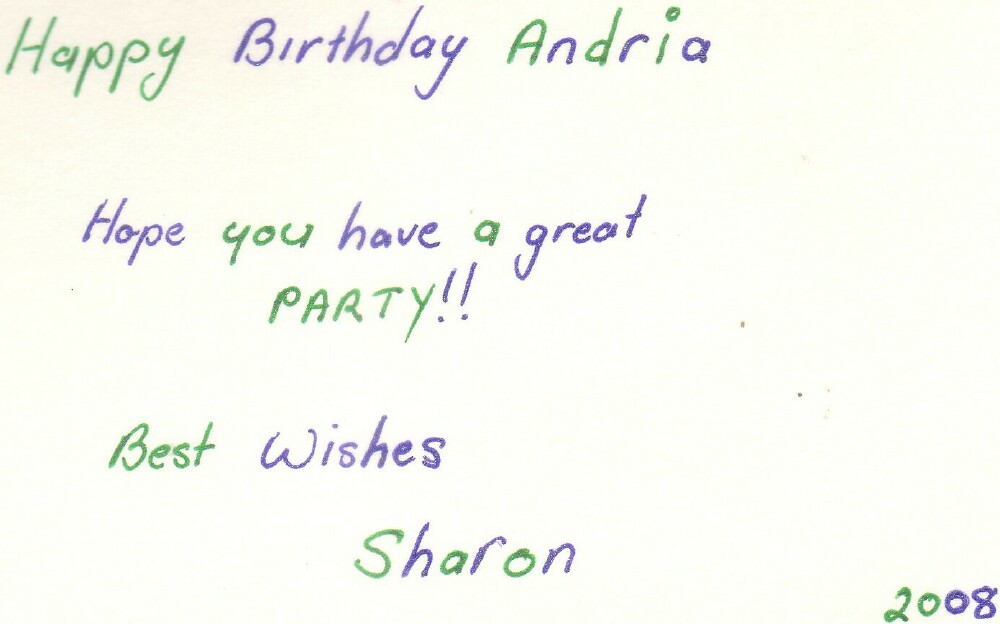 Happy Birthday Andria
Hope you have a great
PARTY!!
Best Wishes
Sharon
2008